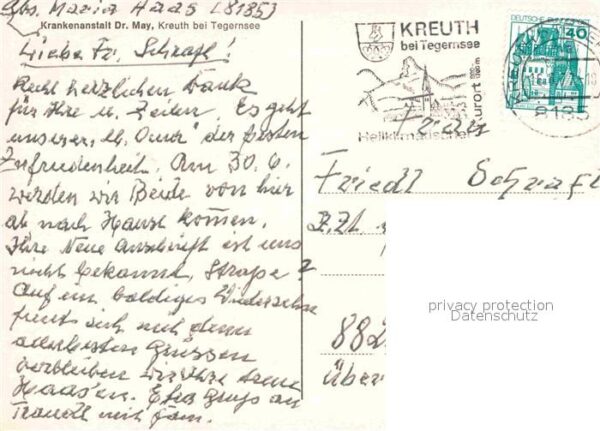 Abs. Maria Haas (8185)
Krankenanstalt Dr. May, Kreuth bei Tegernsee
Liebe Fr. Schrafl!
Recht herzlichen Dank
für Ihre u. Zeilen. Es geht
unserer, lb. Oma" der besten
Zufriedenheit. Am 30. 6.
werden wir Beide von hier
ab nach Hause kommen.
Ihre Neue Anschrift ist uns
nicht bekannt, Straße?
Auf ein baldiges Wiedersehn
freut sich mit den
allerbesten Grüssen
verbleiben wir Ihre
Haas'en. Gruß an
mit Fam.
KREUTH
bei Tegernsee
Heilklimatischer
Kurort
DEUTSCHE BUNDESPOST
40
KREUTH
8185
Frau
Friedl Schrafl
z.Zt.
882
Über
privacy protection
Datenschutz